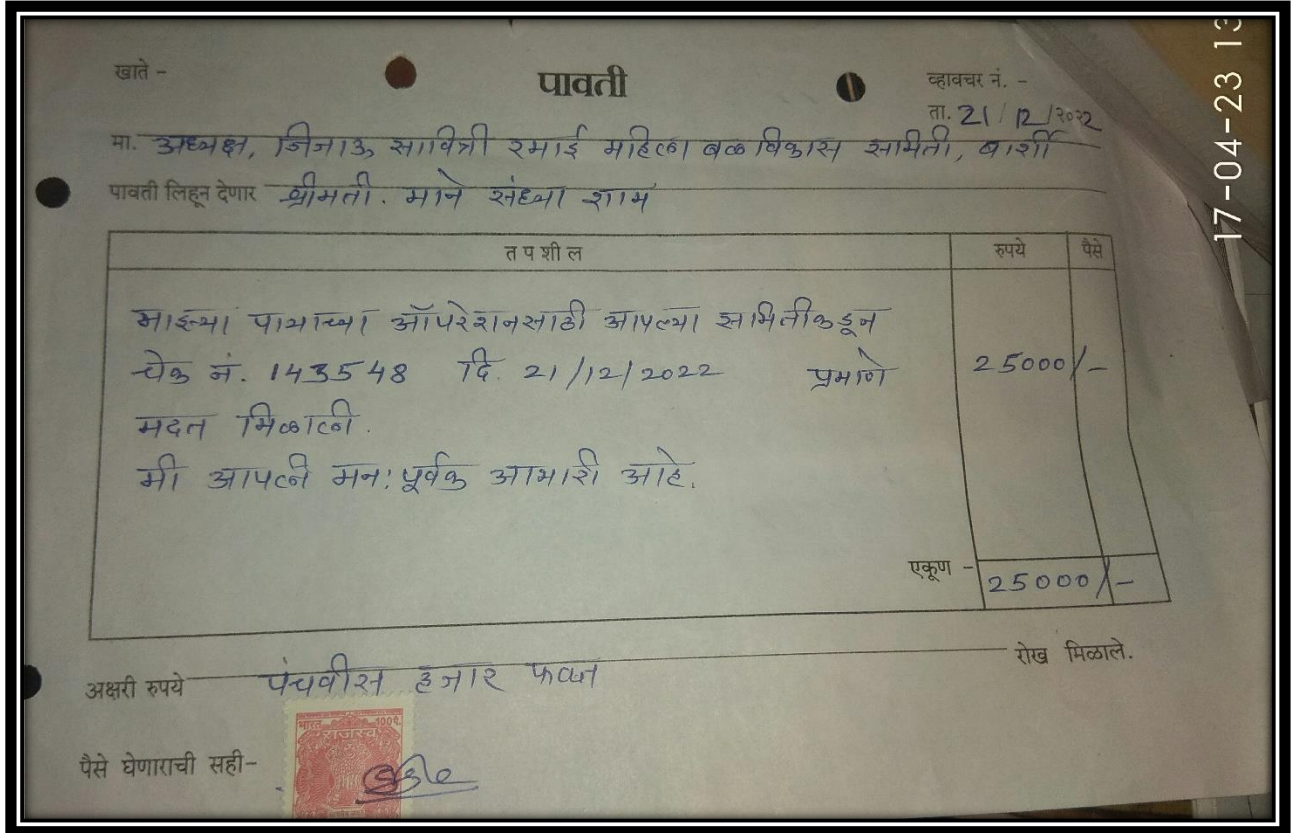 खाते -
पावती
व्हावचर नं. -
ता. 21/12/२०२२
मा. अध्यक्ष, जिजाऊ सावित्री रमाई महिला बळ विकास समिती, बार्शी
पावती लिहून देणार श्रीमती. माने संध्या शाम
त प शी ल
रुपये
पैसे
माझ्या पायाच्या ऑपरेशनसाठी आपल्या समितीकडून
चेक नं. 143548 दि. 21/12/2022 प्रमाणे
25000/-
मदत मिळाली.
मी आपली मन:पूर्वक आभारी आहे.
एकूण -
25000/-
अक्षरी रुपये पंचवीस हजार फक्त
रोख मिळाले.
पैसे घेणाराची सही-
भारत 100प.
राजस्व
17-04-23 13